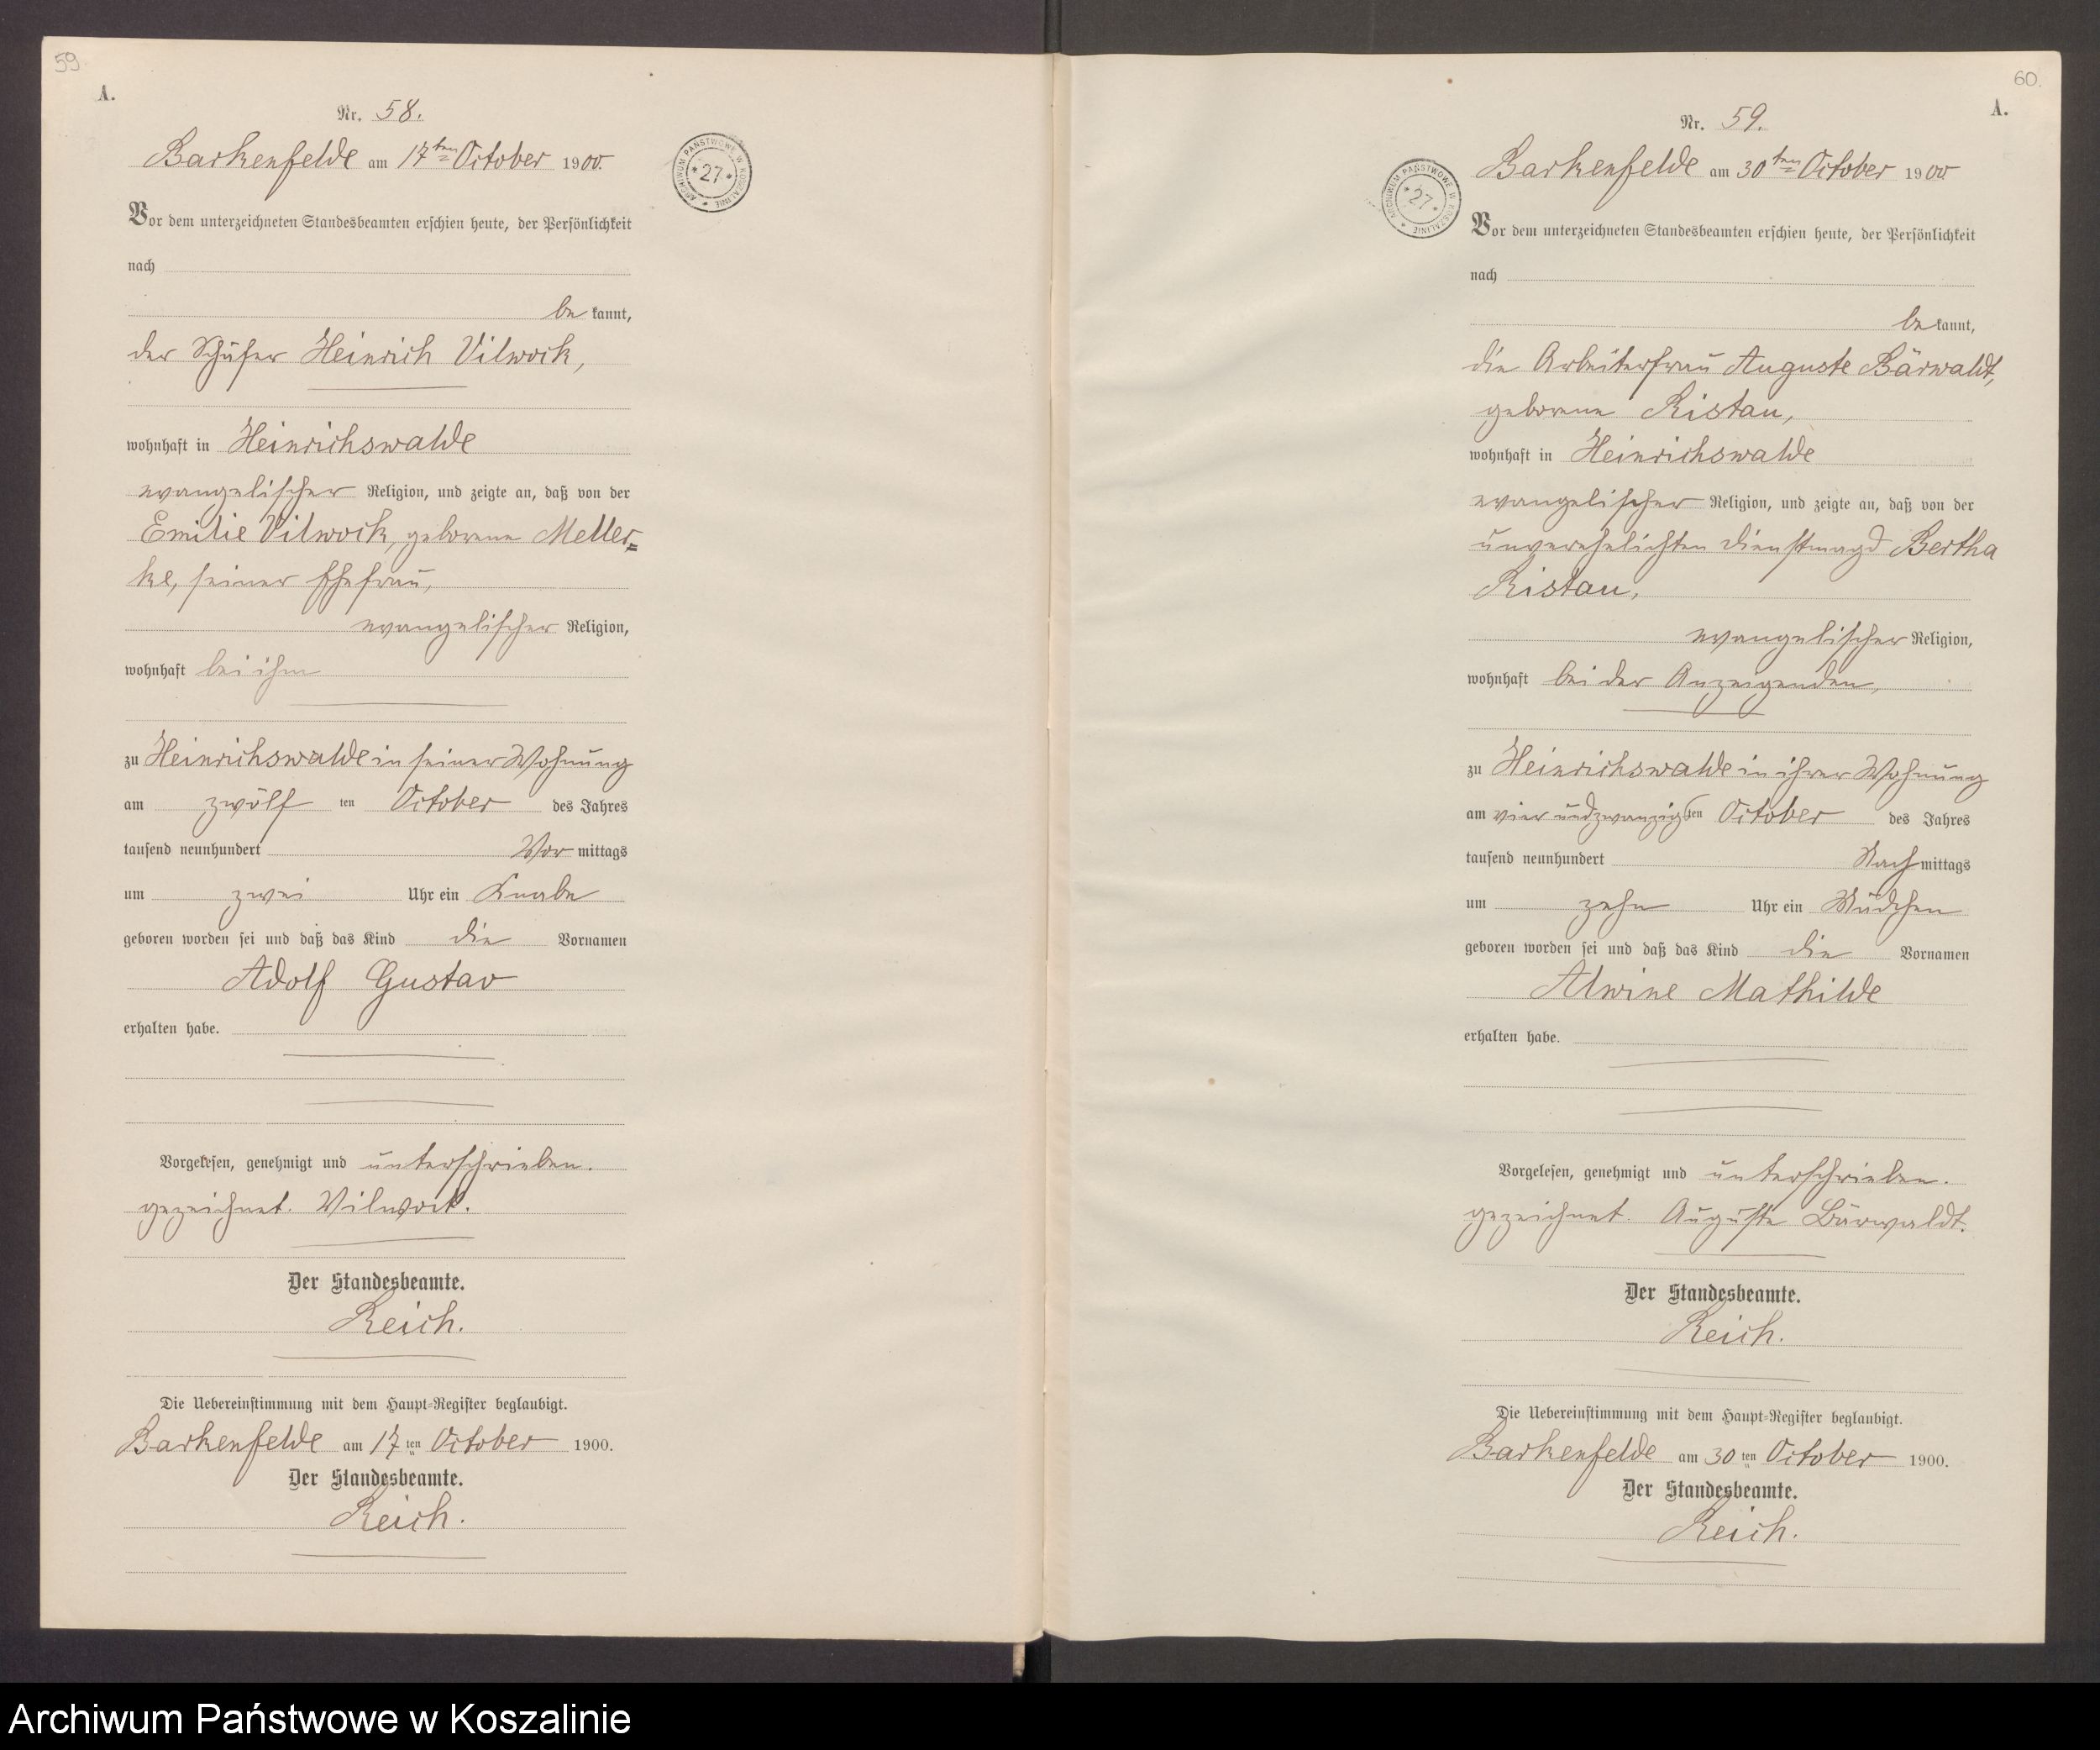 59
A.
Nr. 58.
Barkenfelde am 17ten October 1900.
Vor dem unterzeichneten Standesbeamten erschien heute, der Persönlichkeit
nach
be kannt,
der Schäfer Heinrich Vilwock,
wohnhaft in Heinrichswalde
evangelischer Religion, und zeigte an, daß von der
Emilie Vilwock, geborene Meller=
ke, seiner Ehefrau,
evangelischer Religion,
wohnhaft bei ihm
zu Heinrichswalde in seiner Wohnung
am zwölf ten October des Jahres
tausend neunhundert Vor mittags
um zwei Uhr ein Knabe
geboren worden sei und daß das Kind die Vornamen
Adolf Gustav
erhalten habe.
Vorgelesen, genehmigt und unterschrieben.
gezeichnet. Vilwock.
Der Standesbeamte.
Reich.
Die Uebereinstimmung mit dem Haupt-Register beglaubigt.
Barkenfelde am 17 ten October 1900.
Der Standesbeamte.
Reich.
ARCHIWUM PAŃSTWOWE W KOSZALINIE
*27*
60.
A.
Nr. 59.
Barkenfelde am 30ten October 1900
ARCHIWUM PAŃSTWOWE W KOSZALINIE
*27*
Vor dem unterzeichneten Standesbeamten erschien heute, der Persönlichkeit
nach
be kannt,
die Arbeiterfrau Auguste Bärwaldt,
geborene Ristau,
wohnhaft in Heinrichswalde
evangelischer Religion, und zeigte an, daß von der
unverehelichten Dienstmagd Bertha
Ristau,
evangelischer Religion,
wohnhaft bei der Anzeigenden,
zu Heinrichswalde in ihrer Wohnung
am vier undzwanzigsten October des Jahres
tausend neunhundert Nach mittags
um zehn Uhr ein Mädchen
geboren worden sei und daß das Kind die Vornamen
Alwine Mathilde
erhalten habe.
Vorgelesen, genehmigt und unterschrieben.
gezeichnet. Auguste Bärwaldt.
Der Standesbeamte.
Reich.
Die Uebereinstimmung mit dem Haupt-Register beglaubigt.
Barkenfelde am 30 ten October 1900.
Der Standesbeamte.
Reich.
Archiwum Państwowe w Koszalinie